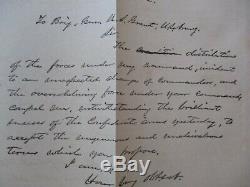 To Brig. Gen U. S. Grant, U.S. Army
Sir
The distribution
of the forces under my command, incident
to an unexpected change of commanders, and
the overwhelming force under your command,
compel me, notwithstanding the brilliant
success of the Confederate arms yesterday, to
accept the ungenerous and unchivalrous
terms which you propose.
I am
Your very obt Sert.